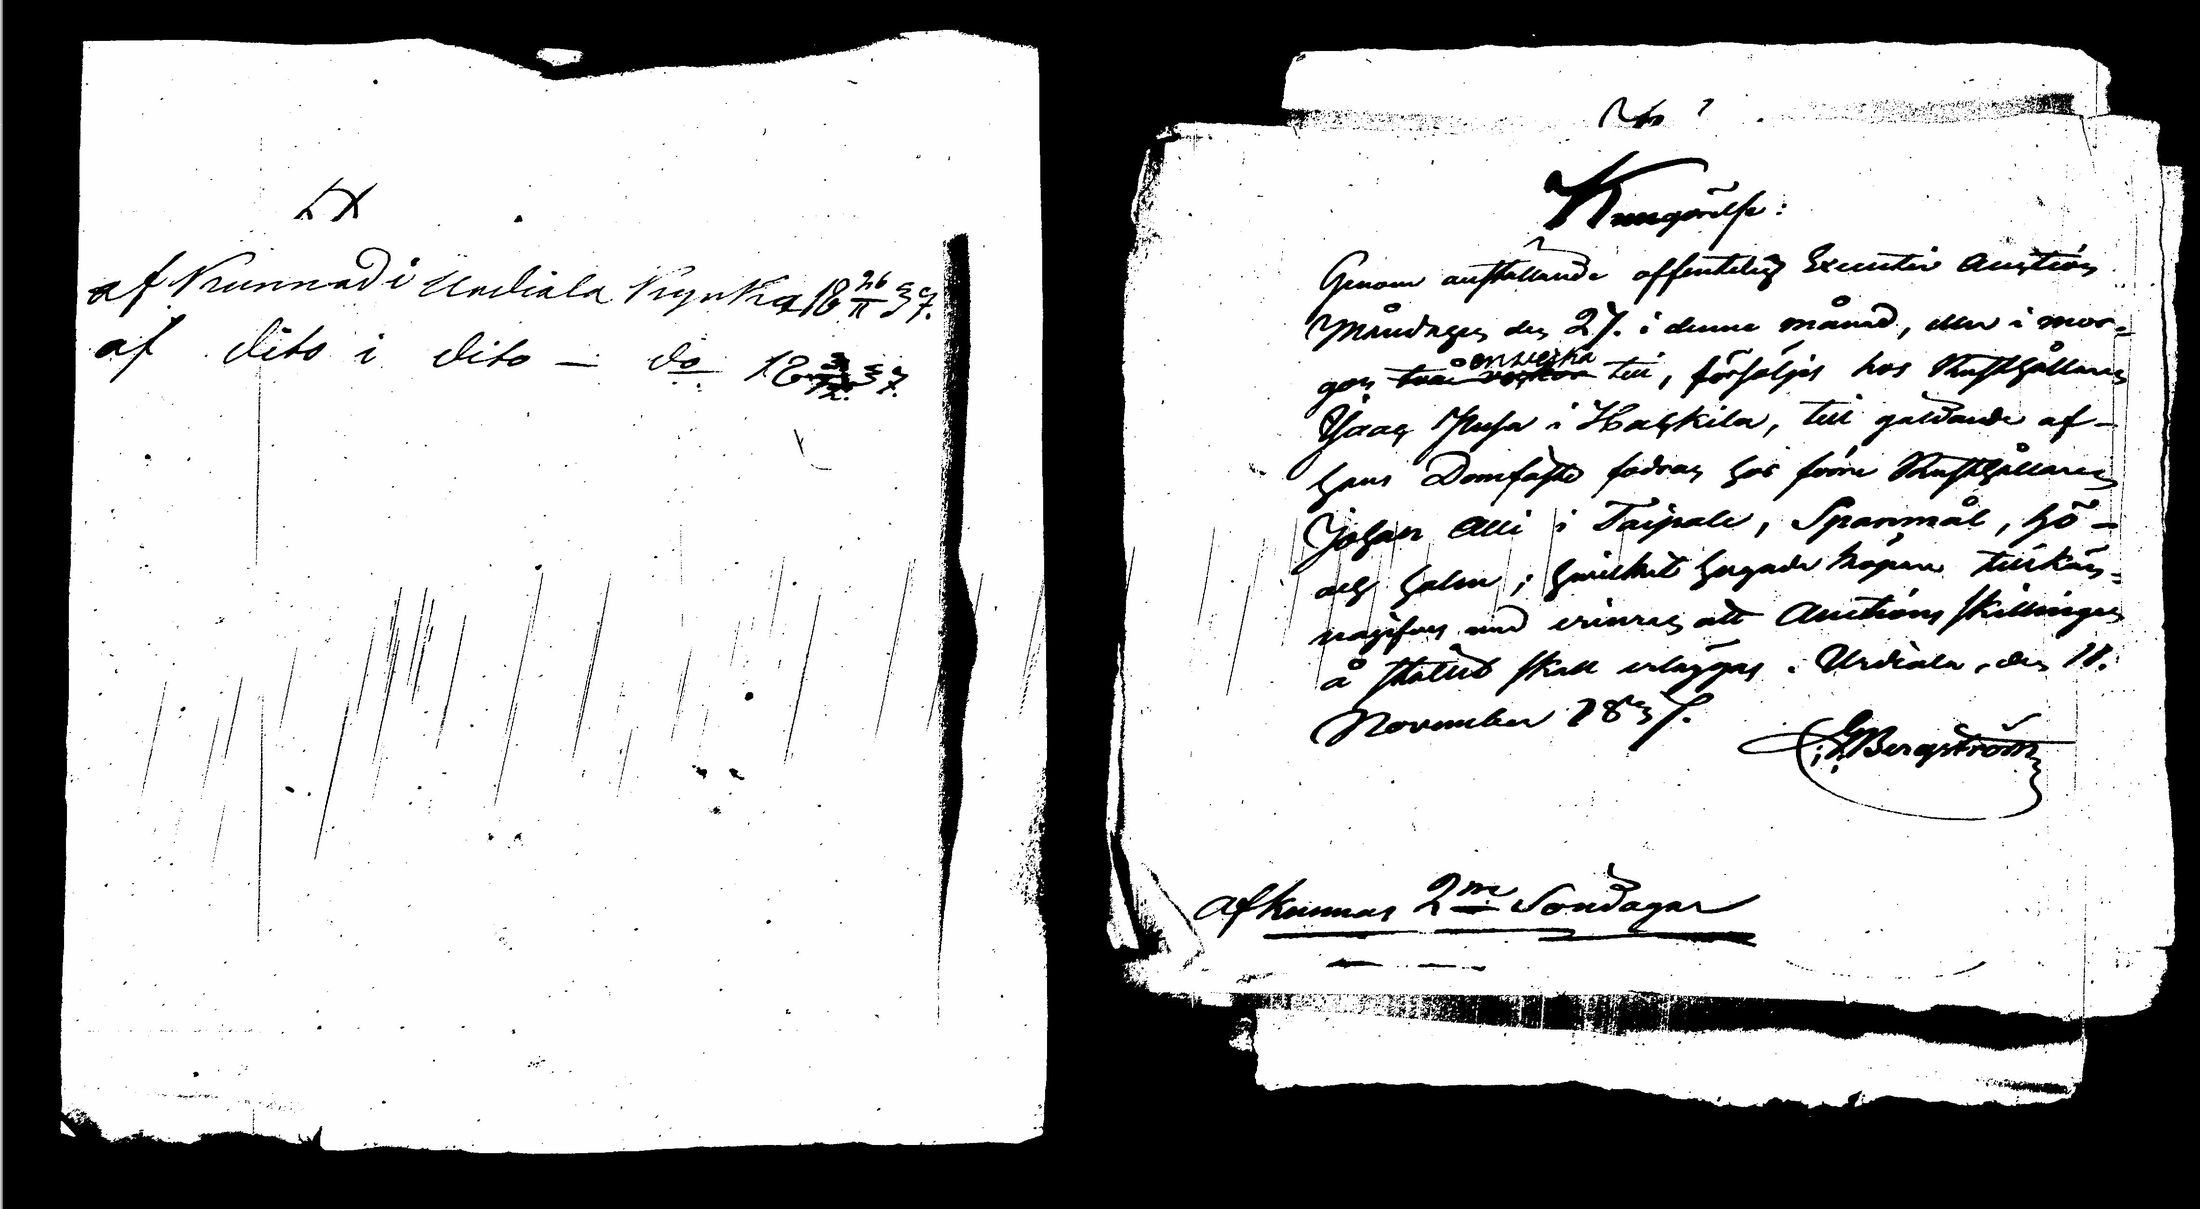 af Kunnad i Urdiala Kyrka 18 26/11 37.
af dito i dito — do 18 37.
Kungörelse:
Genom anställande offentelig Executiv Auction
Måndagen den 27. i denne månad, om i mor-
gon till, försäljes hos Rusthållaren
Isaac i Hakkila, till gäldande af
hans Domfäste fodran hos förre Rusthållaren
Johan Alli i Taipale, Spanmål, hö
och halm; hvilket hugade köpare till kän-
nagifves med erinran att Auctions skillingen
å stället skall erläggas. Urdiala, den 18.
November 1837.
Bergström
afkunnas 2ne Söndagar